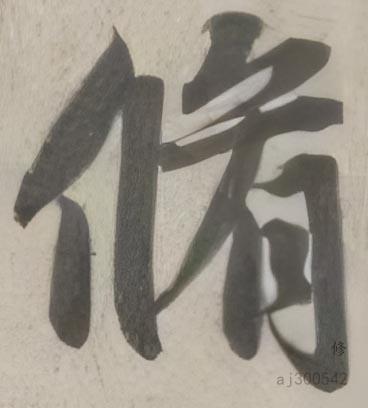 脩
修
aj300542